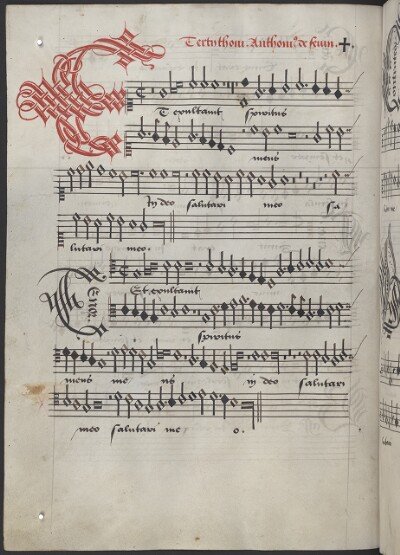 Tertythoni. Anthoni⁹ de fevin. ✝.
Et exultavit spiritus
meus
In deo salutari meo sa
lutari meo.
Tenor
Et exultavit
spiritus
meus me us In deo salutari
meo salutari me o.